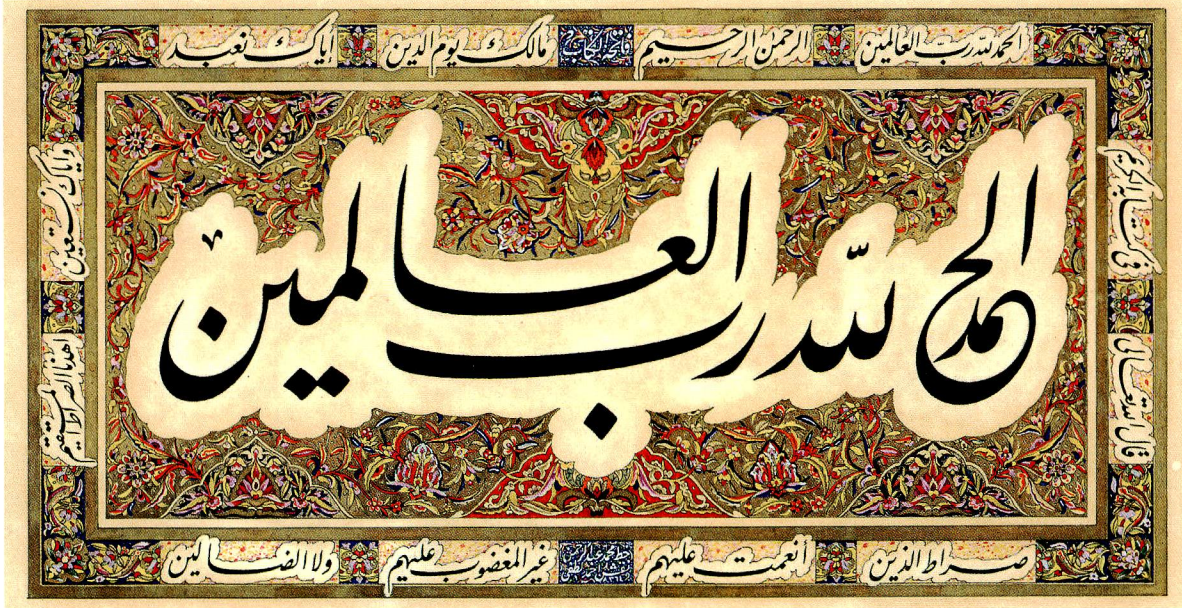 الحمد لله رب العالمين
قال الله تعالى
في كتابه الكريم
الحمد لله رب العالمين
الرحمن الرحيم
فاتحة الكتاب
مالك يوم الدين
إياك نعبد
وإياك نستعين
اهدنا الصراط المستقيم
صراط الذين
أنعمت عليهم
غير المغضوب عليهم
ولا الضالين